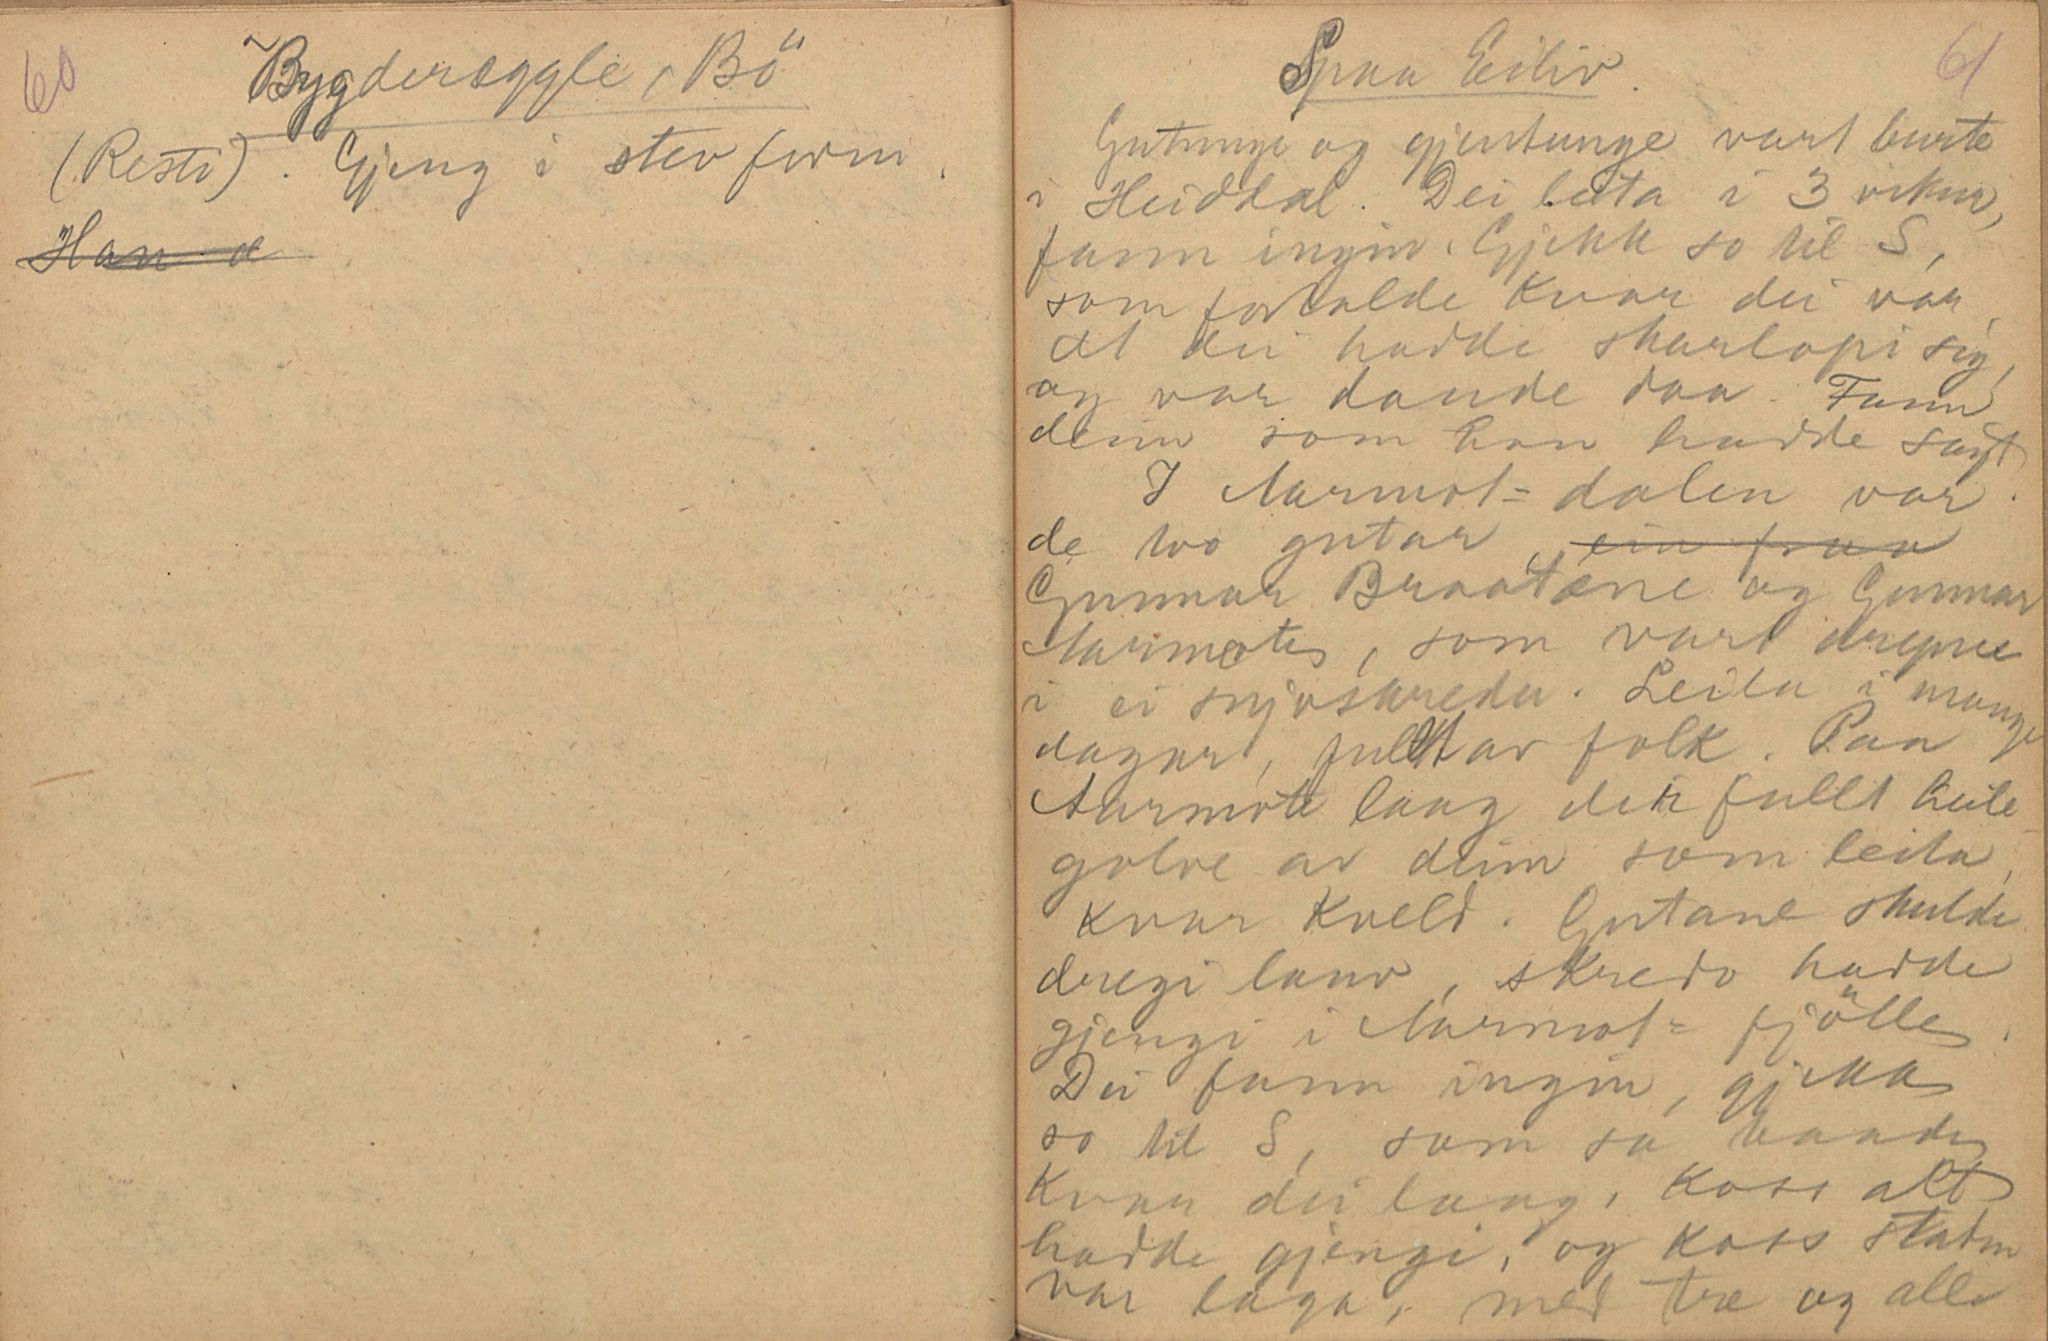 60
Bygderæggle, Bö
(Resti). Gjeng i stev form.
Han d
61
Spaa Eiliv.
Gutunge og gjentunge vart burte
i Heiddal. Dei leita i 3 vikur,
fann ingin. Gjekk so til S,
som fortalde kvar dei var,
at dei hadde skarlopi sig,
og var daude daa. Fann
deim som han hadde sagt
I Aarmot= dalen var
de two gutar, ein fraa
Gunnar Braatane og Gunnar
Aarmote, som vart drepne
i ei snjoskreda. Leita i mange
dagar, fullt av folk. Paa
Aarmote laag dei fullt heile
golve av deim som leita,
kvar kveld. Gutane skulde
dregi lauv, skredo hadde
gjengi i Aarmot= fjölle.
Dei fann ingin, gjekk
so til S, som sa baade
kvar dei laag, koss alt
hadde gjengi, og koss staden
var laga, med tre og alle